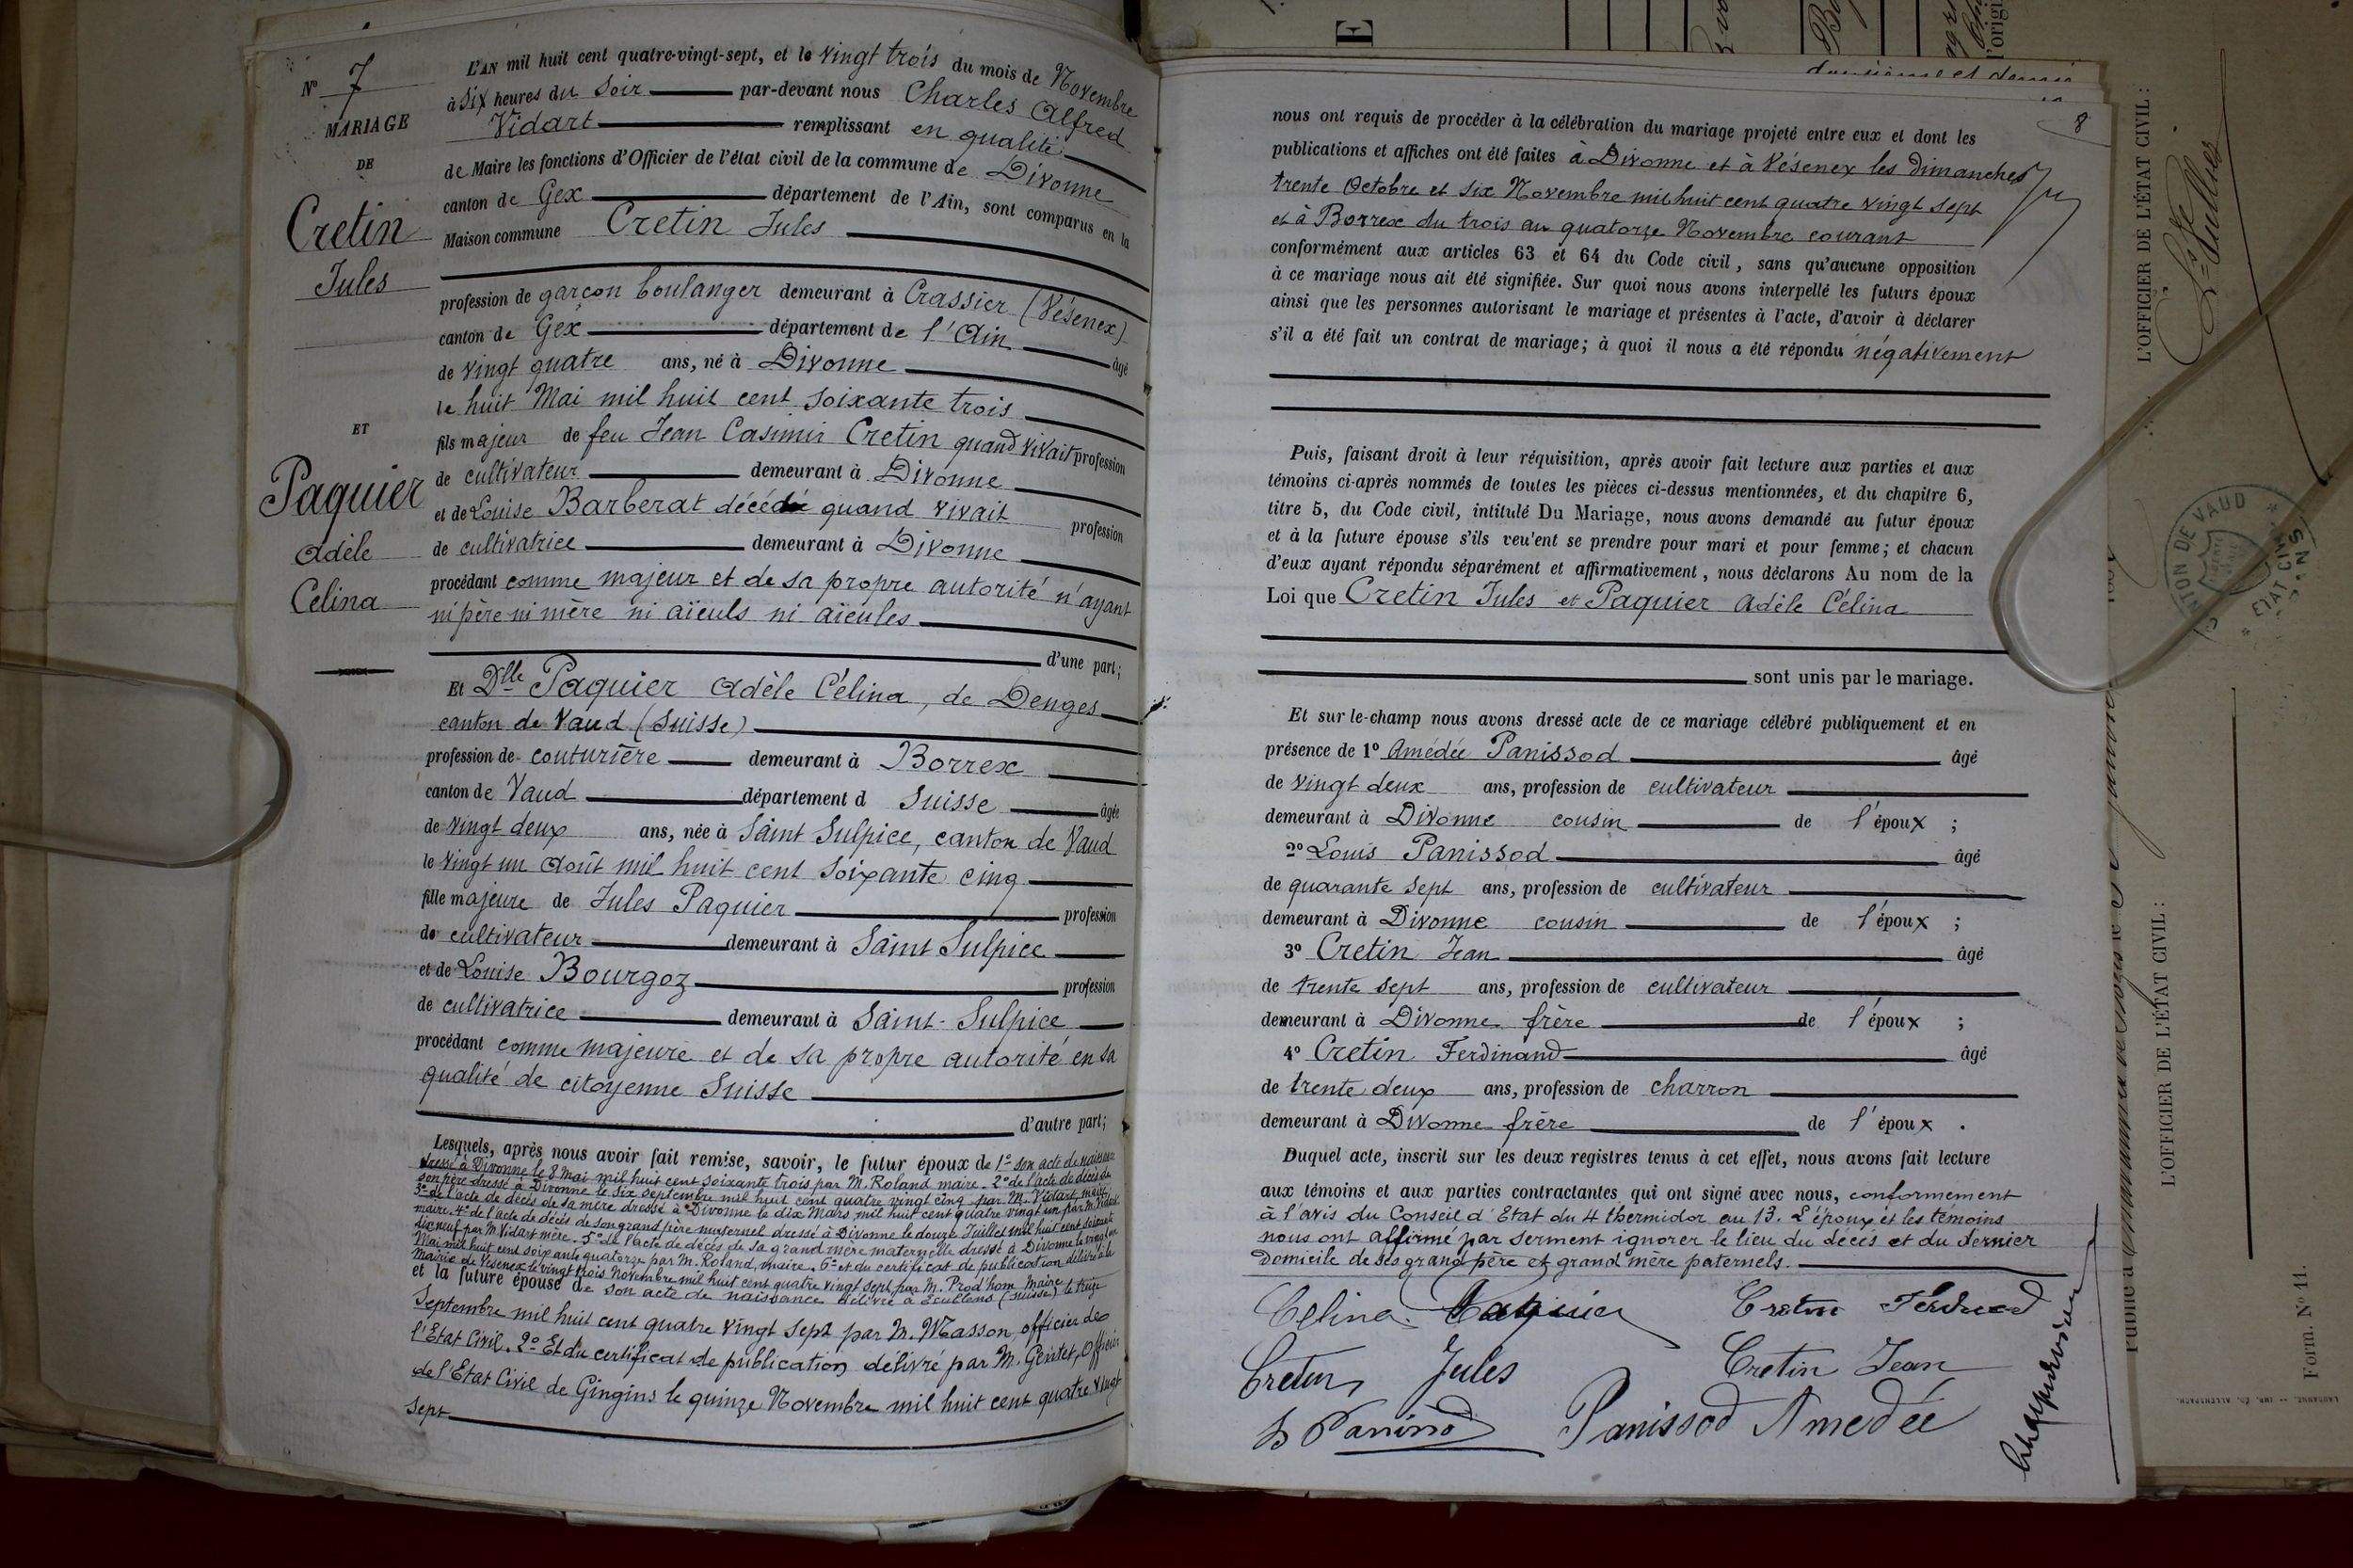 N° 7
MARIAGE
DE
Cretin
Jules
ET
Paquier
Adèle
Celina
L'AN mil huit cent quatre-vingt-sept, et le vingt trois du mois de Novembre
à Six heures du Soir par-devant nous Charles Alfred
Vidart remplissant en qualité
de Maire les fonctions d'Officier de l'état civil de la commune de Divonne
canton de Gex département de l'Ain, sont comparus en la
Maison commune Cretin Jules
profession de garçon boulanger demeurant à Crassier (Vésenex)
canton de Gex département de l'Ain âgé
de vingt quatre ans, né à Divonne
le huit Mai mil huit cent soixante trois
fils majeur de feu Jean Casimir Cretin quand vivait profession
de cultivateur demeurant à Divonne
et de Louise Barberat décédé quand vivait profession
de cultivatrice demeurant à Divonne
procédant comme majeur et de sa propre autorité n'ayant
ni père ni mère ni aïeuls ni aïeules
d'une part;
Et Dlle Paquier Adèle Célina, de Denges
canton de Vaud (Suisse)
profession de couturière demeurant à Borrex
canton de Vaud département d Suisse âgée
de vingt deux ans, née à Saint Sulpice, canton de Vaud
le vingt un Août mil huit cent soixante cinq
fille majeure de Jules Paquier profession
de cultivateur demeurant à Saint Sulpice
et de Louise Bourgoz profession
de cultivatrice demeurant à Saint-Sulpice
procédant comme majeure et de sa propre autorité en sa
qualité de citoyenne Suisse
d'autre part;
Lesquels, après nous avoir fait remise, savoir, le futur époux de 1° son acte de naissance
dressé à Divonne le 8 Mai mil huit cent soixante trois par M. Roland maire. 2° de l'acte de décès de
son père dressé à Divonne le six Septembre mil huit cent quatre vingt cinq par M. Vidart maire
3° de l'acte de décès de sa mère dressé à Divonne le dix Mars mil huit cent quatre vingt un par M. Vidart
maire. 4° de l'acte de décès de son grand père maternel dressé à Divonne le douze Juillet mil huit cent soixante
dix neuf par M. Vidart mère. 5° de l'acte de décès de sa grand mère maternelle dressé à Divonne le
Mai mil huit cent soixante quatorze par M. Roland, maire. 6° et du certificat de publication délivré à la
Mairie de Vésenex le vingt trois Novembre mil huit cent quatre vingt sept par M. Prod'hom Maire
et la future épouse de son acte de naissance délivré à Ecublens (Suisse) le treize
Septembre mil huit cent quatre vingt sept par M. Masson, officier de
l'Etat Civil. 2° Et du certificat de publication délivré par M. Gentet, Officier
de l'Etat Civil de Gingins le quinze Novembre mil huit cent quatre vingt
sept
8
nous ont requis de procéder à la célébration du mariage projeté entre eux et dont les
publications et affiches ont été faites à Divonne et à Vésenex les dimanches
trente Octobre et six Novembre mil huit cent quatre vingt sept
et à Borrex du trois au quatorze Novembre courant
conformément aux articles 63 et 64 du Code civil, sans qu'aucune opposition
à ce mariage nous ait été signifiée. Sur quoi nous avons interpellé les futurs époux
ainsi que les personnes autorisant le mariage et présentes à l'acte, d'avoir à déclarer
s'il a été fait un contrat de mariage; à quoi il nous a été répondu négativement
Puis, faisant droit à leur réquisition, après avoir fait lecture aux parties et aux
témoins ci-après nommés de toutes les pièces ci-dessus mentionnées, et du chapitre 6,
titre 5, du Code civil, intitulé Du Mariage, nous avons demandé au futur époux
et à la future épouse s'ils veu'ent se prendre pour mari et pour femme; et chacun
d'eux ayant répondu séparément et affirmativement, nous déclarons Au nom de la
Loi que Cretin Jules et Paquier Adèle Célina
sont unis par le mariage.
Et sur-le-champ nous avons dressé acte de ce mariage célébré publiquement et en
présence de 1° Amédée Panissod âgé
de vingt deux ans, profession de cultivateur
demeurant à Divonne cousin de l'époux ;
2° Louis Panissod âgé
de quarante sept ans, profession de cultivateur
demeurant à Divonne cousin de l'époux ;
3° Cretin Jean âgé
de trente sept ans, profession de cultivateur
demeurant à Divonne frère de l'époux ;
4° Cretin Ferdinand âgé
de trente deux ans, profession de charron
demeurant à Divonne frère de l'époux .
Duquel acte, inscrit sur les deux registres tenus à cet effet, nous avons fait lecture
aux témoins et aux parties contractantes qui ont signé avec nous, conformement
à l'avis du Conseil d'Etat du 4 thermidor an 13. L'époux et les témoins
nous ont affirmé par serment ignorer le lieu du décès et du dernier
Domicile de ses grand père et grand mère paternels.
Celina Paquier Cretin Ferdinand
Cretin Jules Cretin Jean
L Panissod Panissod Amedée
L'OFFICIER DE L'ÉTAT CIVIL :
L'OFFICIER DE L'ÉTAT CIVIL :
CANTON DE VAUD
ETAT CIVIL
Form. N° 11.